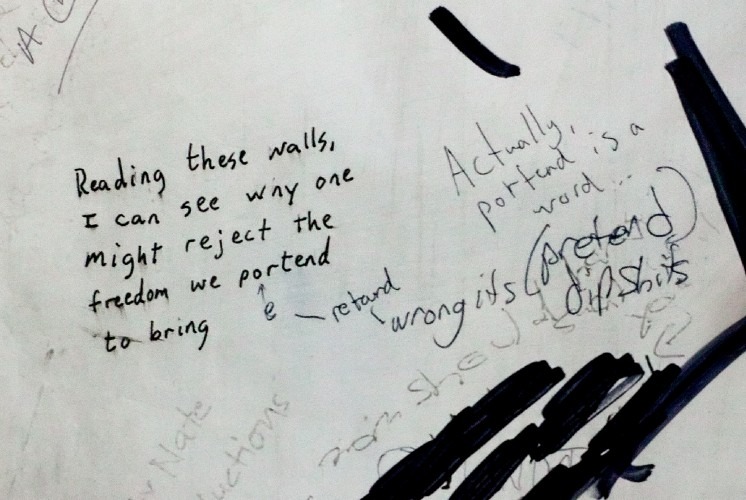 Reading these walls,
I can see why one
might reject the
freedom we portend
to bring
e
retard
wrong its (pretend)
dipshits
Actually,
portend is a
word...
Nate